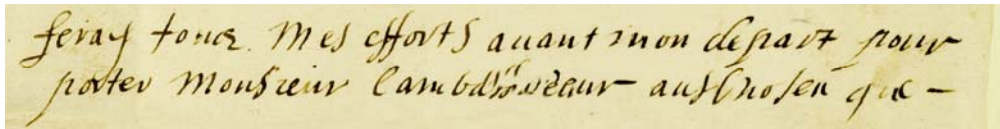 feray tous mes efforts auant mon depart pour
porter Monsieur l'ambassadeur aus choses que -